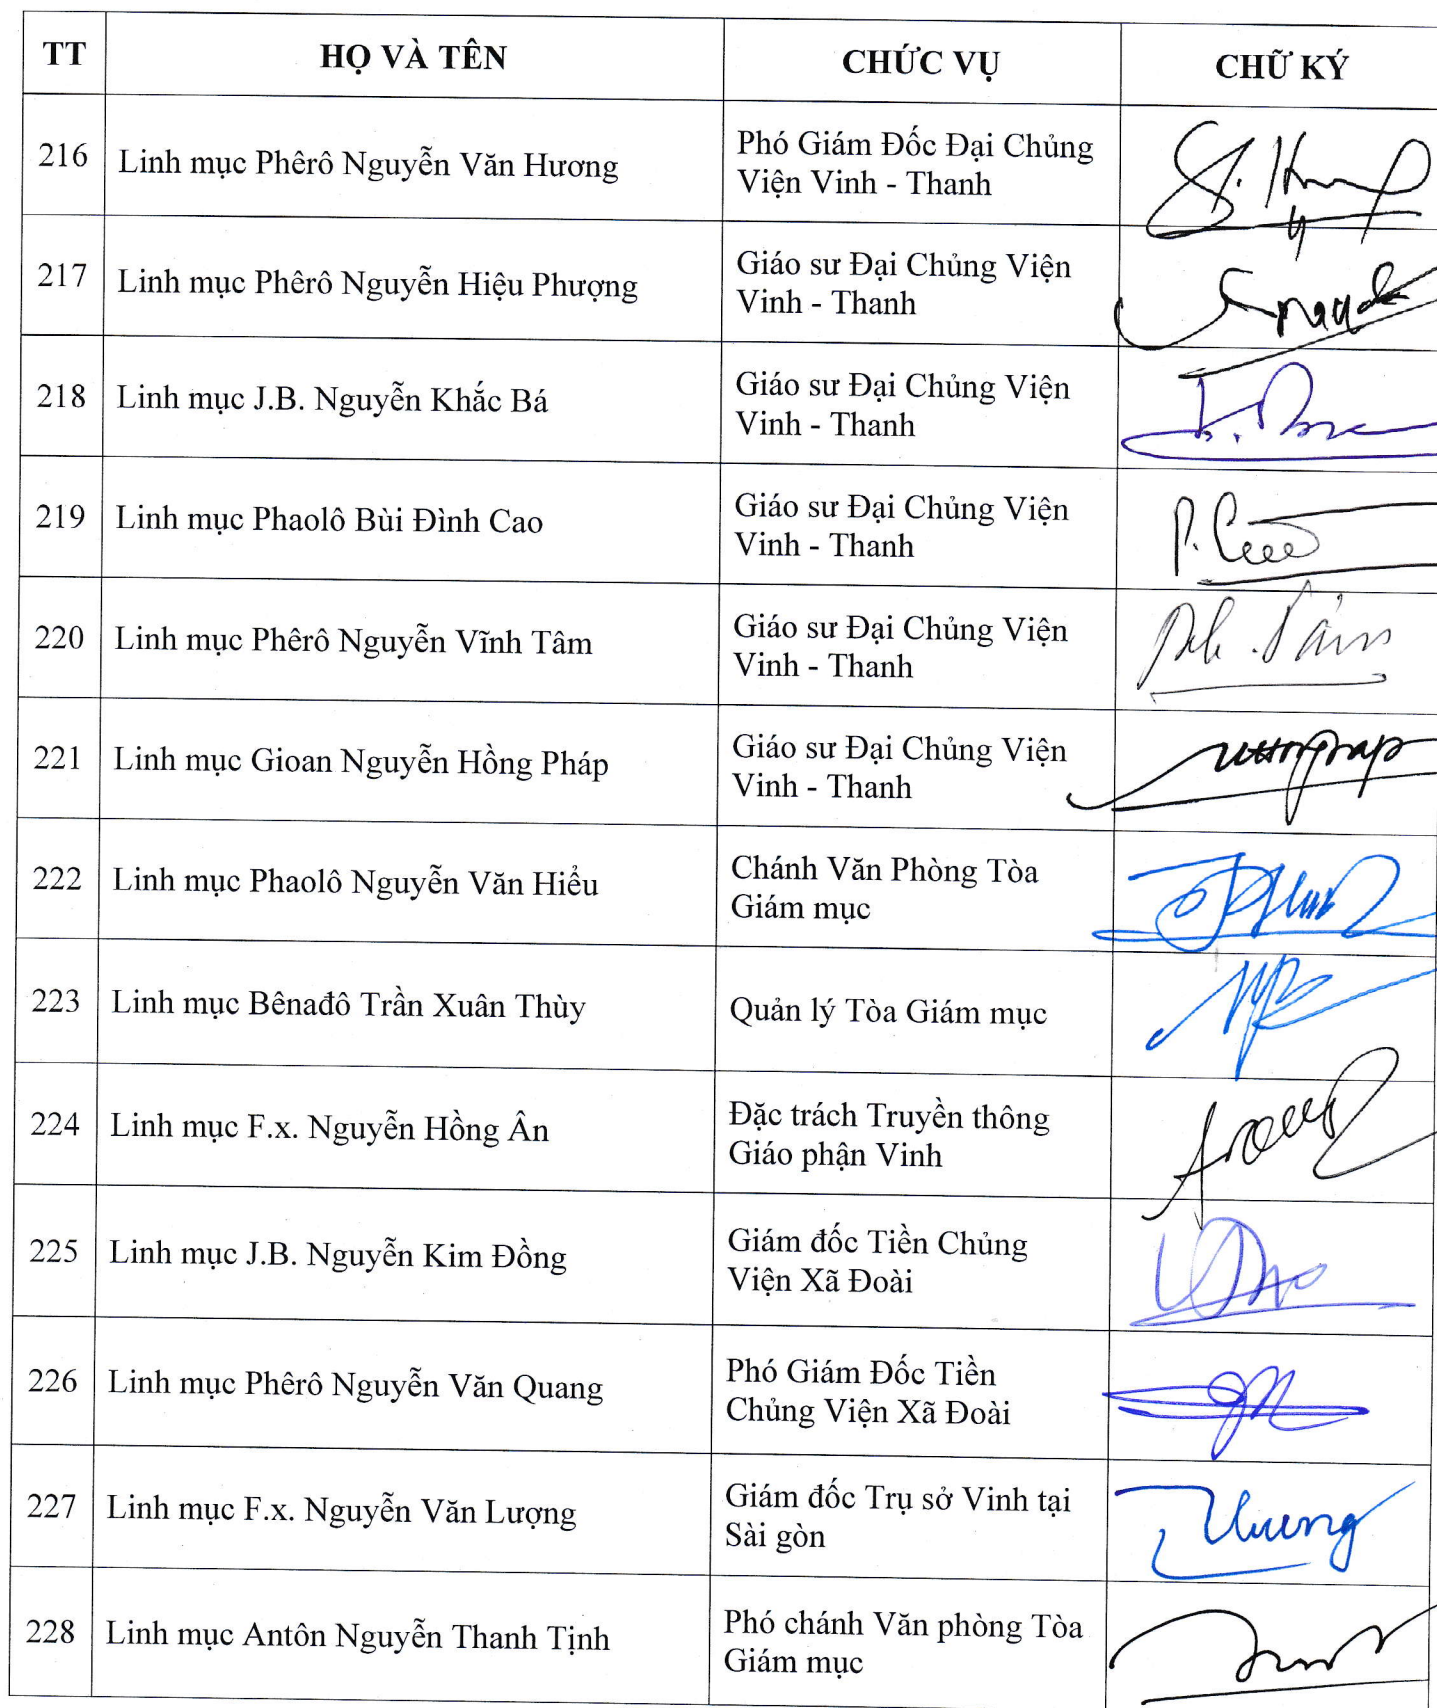 TT HỌ VÀ TÊN CHỨC VỤ CHỮ KÝ
216 Linh mục Phêrô Nguyễn Văn Hương Phó Giám Đốc Đại Chủng
Viện Vinh - Thanh
217 Linh mục Phêrô Nguyễn Hiệu Phượng Giáo sư Đại Chủng Viện
Vinh - Thanh
218 Linh mục J.B. Nguyễn Khắc Bá Giáo sư Đại Chủng Viện
Vinh - Thanh
219 Linh mục Phaolô Bùi Đình Cao Giáo sư Đại Chủng Viện
Vinh - Thanh
220 Linh mục Phêrô Nguyễn Vĩnh Tâm Giáo sư Đại Chủng Viện
Vinh - Thanh
221 Linh mục Gioan Nguyễn Hồng Pháp Giáo sư Đại Chủng Viện
Vinh - Thanh
222 Linh mục Phaolô Nguyễn Văn Hiểu Chánh Văn Phòng Tòa
Giám mục
223 Linh mục Bênađô Trần Xuân Thùy Quản lý Tòa Giám mục
224 Linh mục F.x. Nguyễn Hồng Ân Đặc trách Truyền thông
Giáo phận Vinh
225 Linh mục J.B. Nguyễn Kim Đồng Giám đốc Tiền Chủng
Viện Xã Đoài
226 Linh mục Phêrô Nguyễn Văn Quang Phó Giám Đốc Tiền
Chủng Viện Xã Đoài
227 Linh mục F.x. Nguyễn Văn Lượng Giám đốc Trụ sở Vinh tại
Sài gòn
228 Linh mục Antôn Nguyễn Thanh Tịnh Phó chánh Văn phòng Tòa
Giám mục